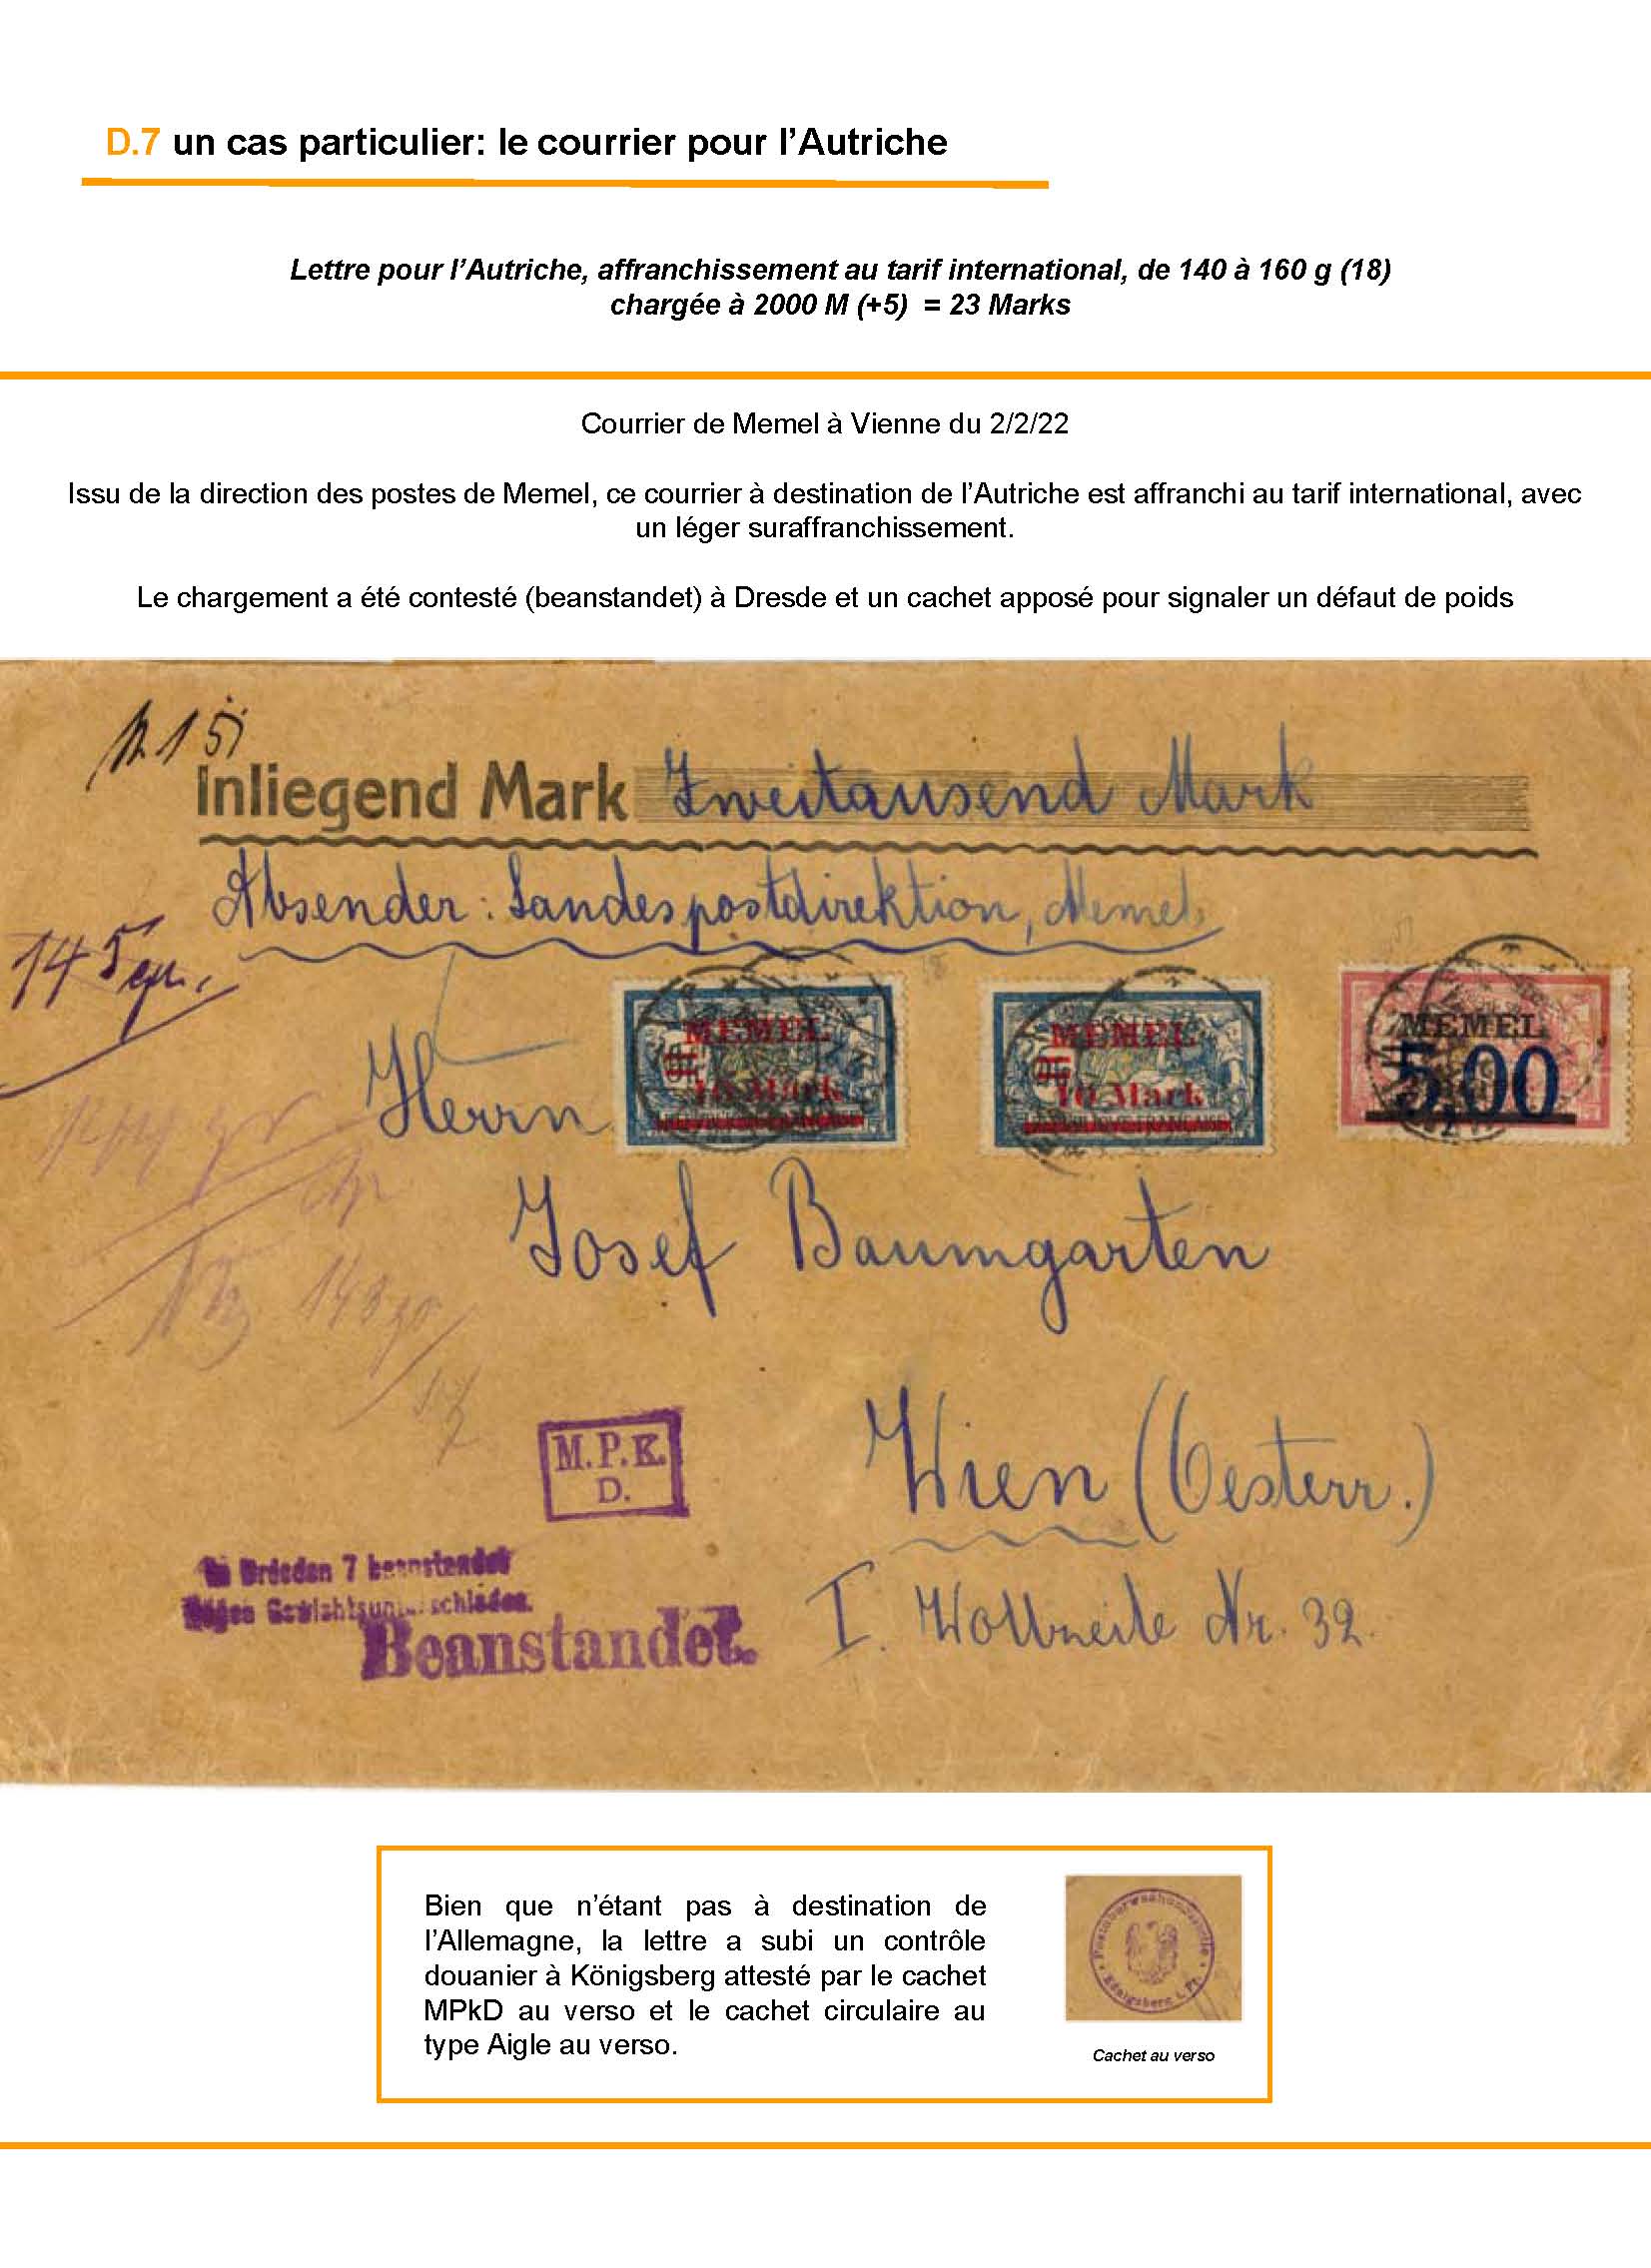 D.7 un cas particulier: le courrier pour l’Autriche
Lettre pour l’Autriche, affranchissement au tarif international, de 140 à 160 g (18)
chargée à 2000 M (+5)  = 23 Marks
Courrier de Memel à Vienne du 2/2/22
Issu de la direction des postes de Memel, ce courrier à destination de l’Autriche est affranchi au tarif international, avec
un léger suraffranchissement.
Le chargement a été contesté (beanstandet) à Dresde et un cachet apposé pour signaler un défaut de poids
Inliegend Mark Zweitausend Mark
Absender: Landespostdirektion, Memel
MEMEL
10 Mark
MEMEL
10 Mark
MEMEL
5,00
Herrn
Josef Baumgarten
Wien (Oesterr.)
I. Wollzeile Nr. 32.
M.P.K.
D.
Dresden 7 beanstandet
Beanstandet.
Bien que n’étant pas à destination de
l’Allemagne, la lettre a subi un contrôle
douanier à Königsberg attesté par le cachet
MPkD au verso et le cachet circulaire au
type Aigle au verso.
Postüberwachungsstelle
Königsberg i. Pr.
Cachet au verso